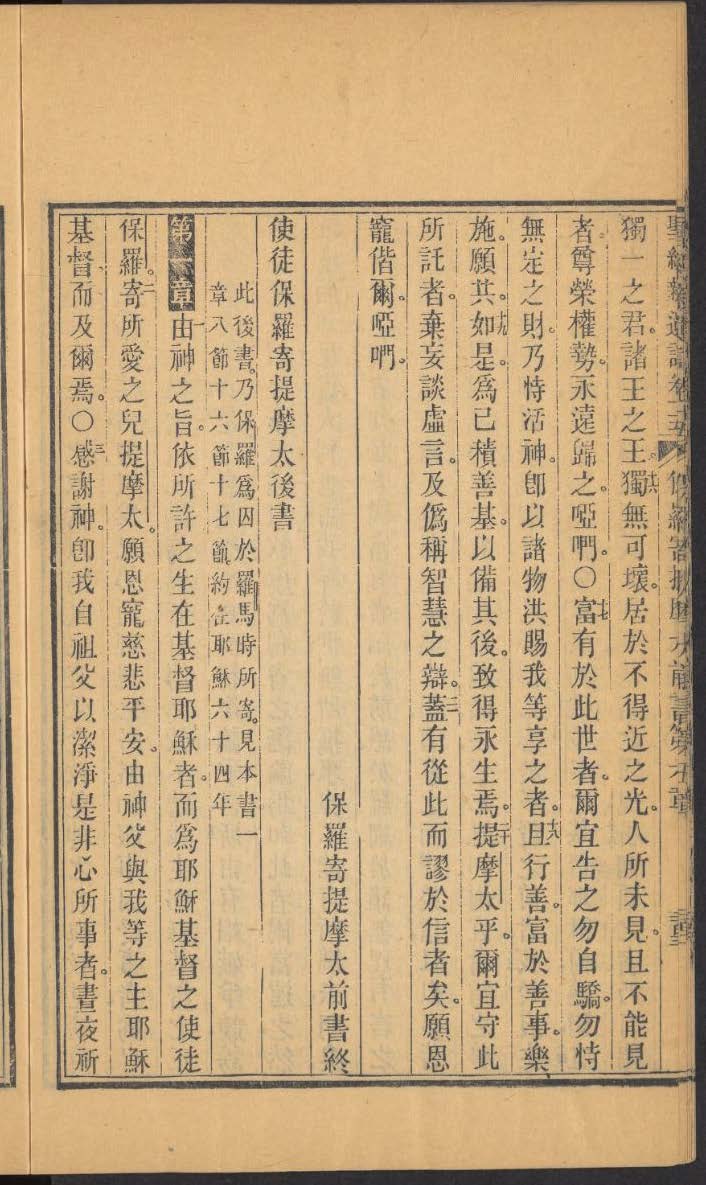 聖經新遺詔卷十五 保羅寄提摩太前書第六章
獨一之君。諸王之王。十六獨無可壞。居於不得近之光。人所未見。且不能見
者。尊榮權勢。永遠歸之。啞們。〇十七富有於此世者。爾宜告之勿自驕。勿恃
無定之財。乃恃活神。卽以諸物洪賜我等享之者。十八且行善。富於善事。樂
施。願共。十九如是。爲己積善基。以備其後。致得永生焉。二十提摩太乎。爾宜守此
所託者。棄妄談虛言。及僞稱智慧之辯。二一蓋有從此而謬於信者矣。願恩
寵偕爾。啞們。
保羅寄提摩太前書終
使徒保羅寄提摩太後書
此後書。乃保羅爲囚於羅馬時所寄。見本書一
章八節十六節十七節。約在耶穌六十四年
第一章一由神之旨。依所許之生在基督耶穌者。而爲耶穌基督之使徒
保羅。二寄所愛之兒提摩太。願恩寵慈悲平安。由神父與我等之主耶穌
基督、而及爾焉。〇三感謝神。卽我自祖父以潔淨是非心所事者。晝夜祈